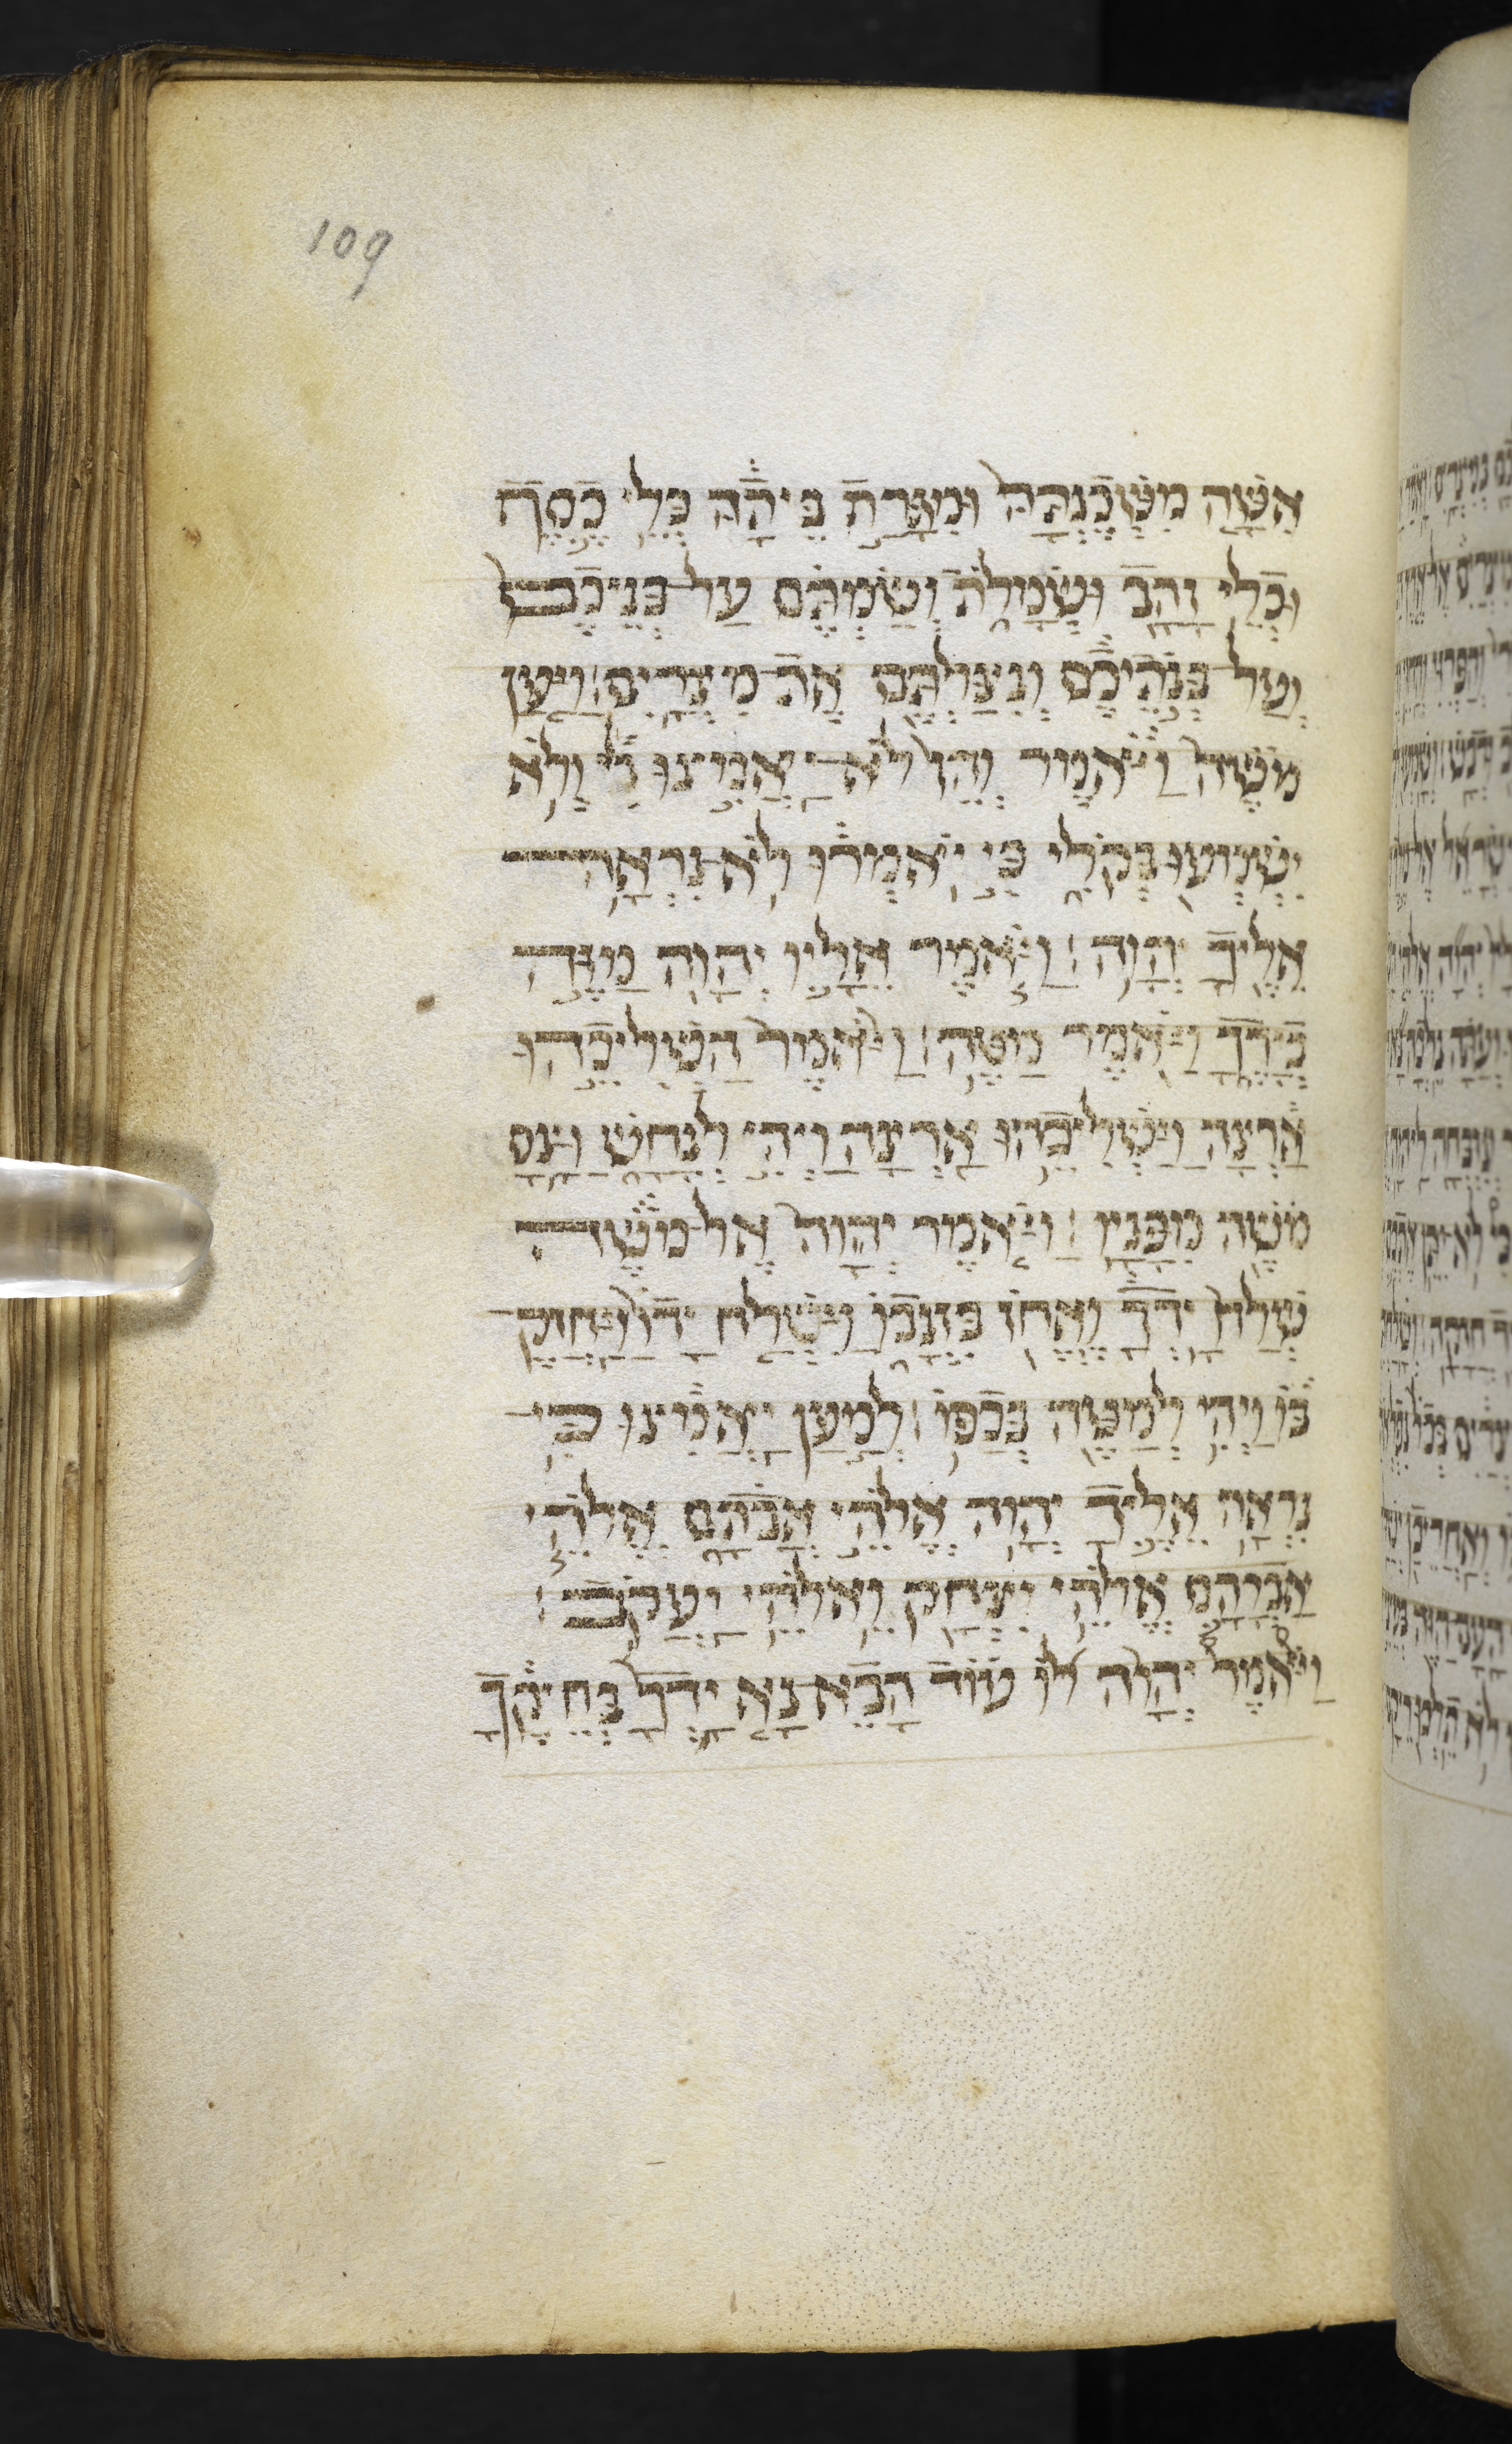 109
אִשָּׁה מִשְּׁכֶנְתָּהּ וּמִגָּרַת בֵּיתָהּ כְּלֵי כֶסֶף
וּכְלֵי זָהָב וּשְׂמָלֹת וְשַׂמְתֶּם עַל־בְּנֵיכֶם
וְעַל־בְּנֹתֵיכֶם וְנִצַּלְתֶּם אֶת־מִצְרָיִם׃ וַיַּעַן
מֹשֶׁה וַיֹּאמֶר וְהֵן לֹא־יַאֲמִינוּ לִי וְלֹא
יִשְׁמְעוּ בְּקֹלִי כִּי יֹאמְרוּ לֹא־נִרְאָה
אֵלֶיךָ יְהוָה׃ וַיֹּאמֶר אֵלָיו יְהוָה מַזֶּה
בְיָדֶךָ וַיֹּאמֶר מַטֶּה׃ וַיֹּאמֶר הַשְׁלִיכֵהוּ
אַרְצָה וַיַּשְׁלִיכֵהוּ אַרְצָה וַיְהִי לְנָחָשׁ וַיָּנָס
מֹשֶׁה מִפָּנָיו׃ וַיֹּאמֶר יְהוָה אֶל־מֹשֶׁה
שְׁלַח יָדְךָ וֶאֱחֹז בִּזְנָבוֹ וַיִּשְׁלַח יָדוֹ וַיַּחֲזֶק־
בּוֹ וַיְהִי לְמַטֶּה בְּכַפּוֹ׃ לְמַעַן יַאֲמִינוּ כִּי־
נִרְאָה אֵלֶיךָ יְהוָה אֱלֹהֵי אֲבֹתָם אֱלֹהֵי
אַבְרָהָם אֱלֹהֵי יִצְחָק וֵאלֹהֵי יַעֲקֹב׃
וַיֹּאמֶר יְהוָה לוֹ עוֹד הָבֵא־נָא יָדְךָ בְּחֵיקֶךָ